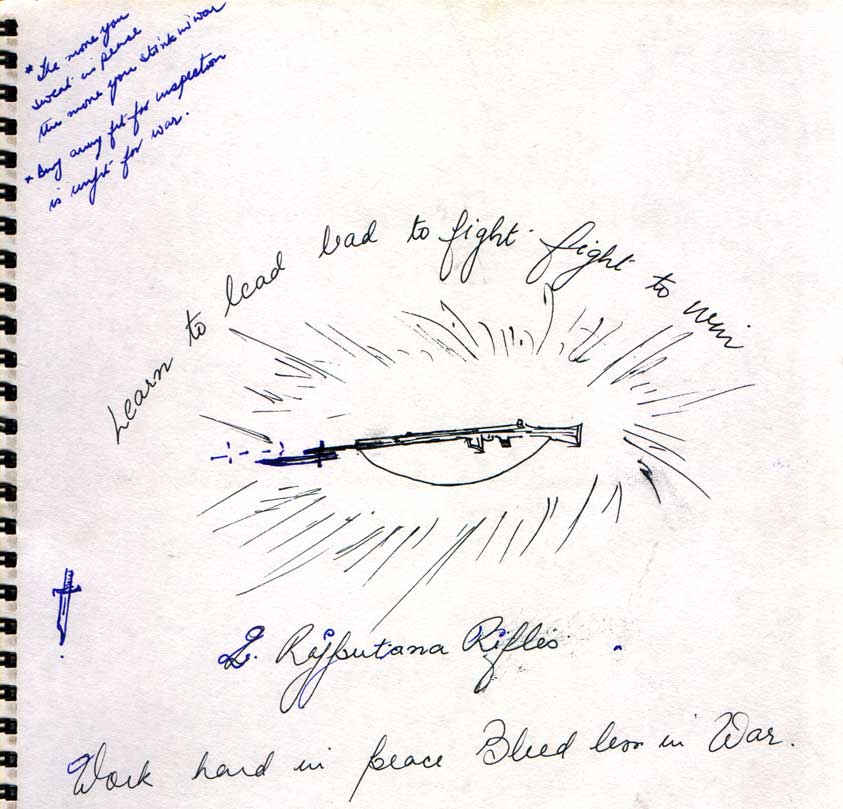 * The more you
sweat in peace
the more you stink in war
* Any army fit for inspection
is unfit for war.
Learn to lead lead to fight fight to win
2. Rajputana Rifles
Work hard in peace Bleed less in War.